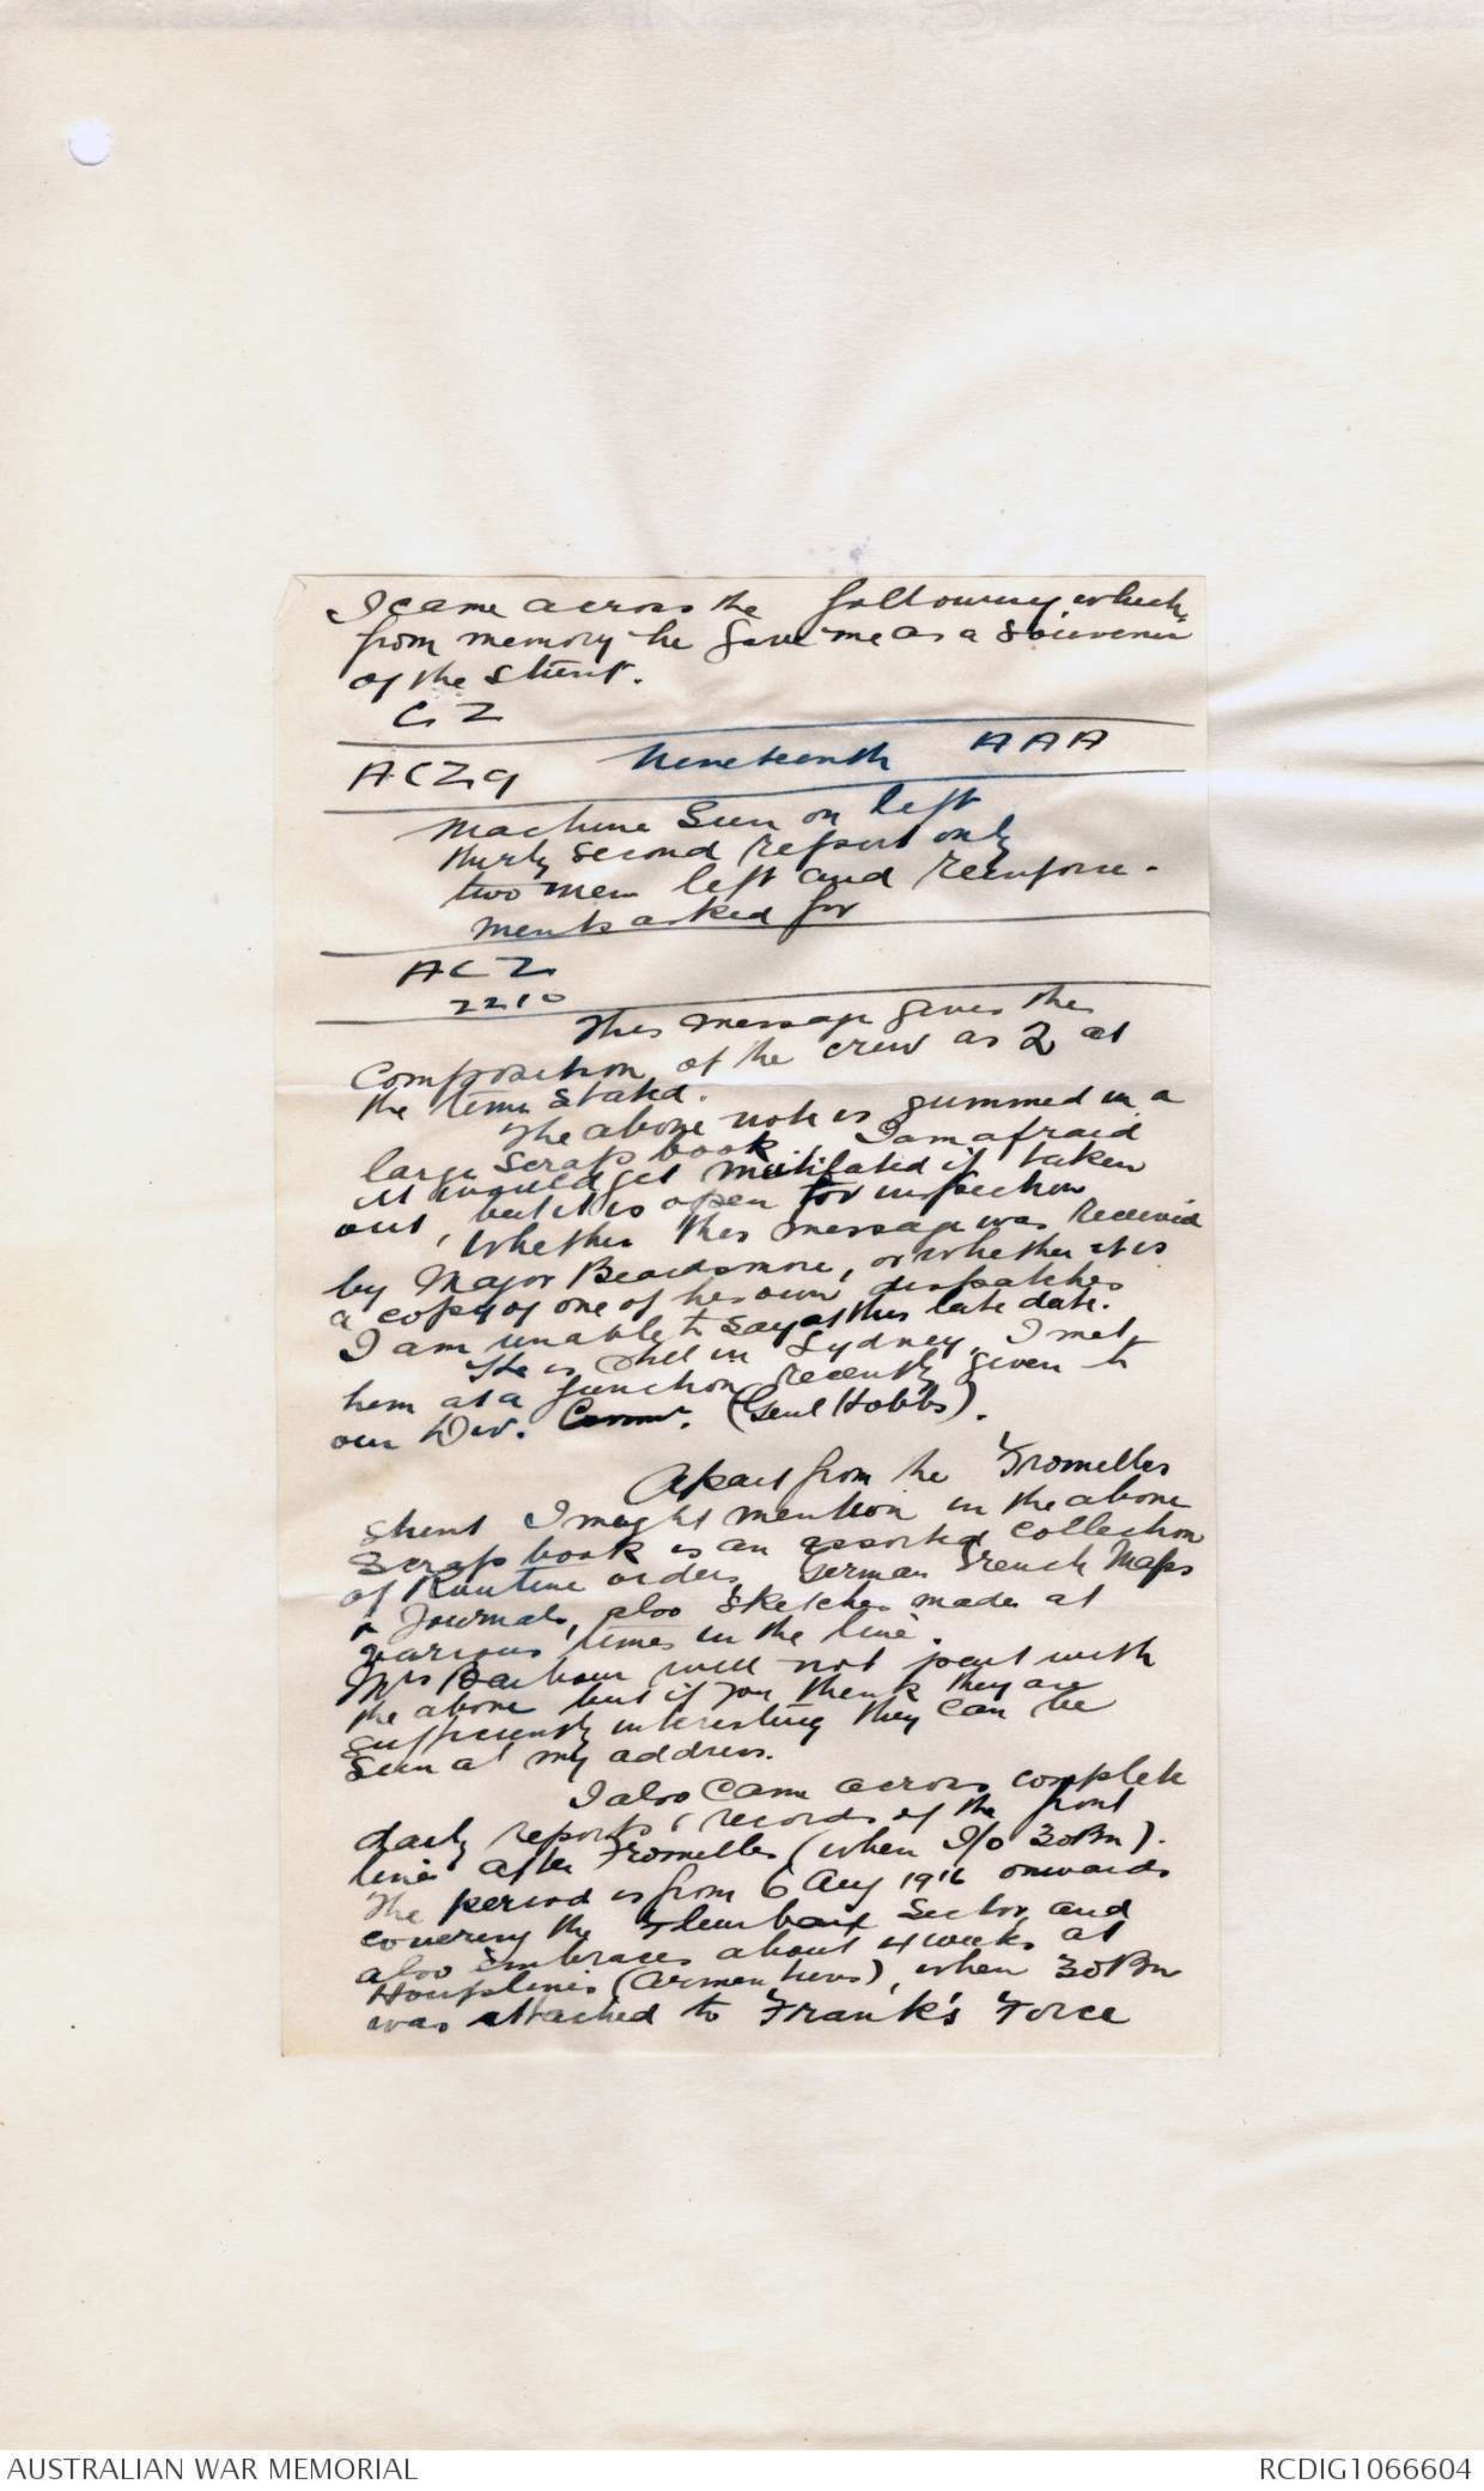 I came across the following which,
from memory he gave me as a souvenir
of the stunt.
CZ
ACZ9 Nineteenth AAA
Machine Gun on left
thirty second report only
two men left and reinforce-
ments asked for
ACZ
2210
This message gives the
composition of the crew as 2 at
the time stated.
The above note is gummed in a
large scrap book. I am afraid
it would get mutilated if taken
out, but it is open for inspection
Whether this message was received
by Major Beardsmore, or whether it is
a copy of one of his own dispatches
I am unable to say at this late date.
He is still in Sydney, I met
him at a function recently given to
our Div. Comm. (Genl Hobbs).
Apart from the Fromelles
stunt I might mention in the above
scrap book is an assorted collection
of Routine orders, German Trench Maps
& Journals, also sketches made at
various times in the line.
Mrs Barbour will not part with
the above but if you think they are
sufficiently interesting they can be
seen at my address.
I also came across complete
daily reports & records of the front
line after Fromelles (when I/O 30Bn).
The period is from 6 Aug 1916 onwards
covering the Fleurbaix Sector, and
also embraces about 4 weeks at
Houplines (Armentieres), when 30Bn
was attached to Frank's Force
AUSTRALIAN WAR MEMORIAL
RCDIG1066604